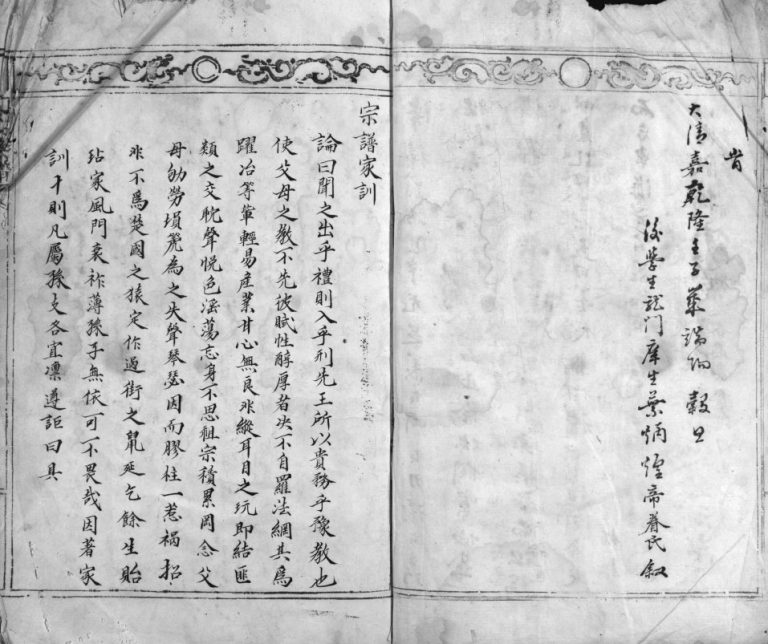 旹
大清嘉乾隆壬子葉端陽穀旦
後學生龍門庠生葉炳煌帝眷氏叙
宗譜家訓
論曰聞之出乎禮則入乎刑先王所以貴務乎豫教也
使父母之教不先彼賦性醇厚者决不自羅法網其為
躍冶等軰輕易產業甘心無良非縱耳目之玩即結匪
類之交耽聲悅色滛蕩忘身不思祖宗積累罔念父
母劬勞塤篪為之失聲琴瑟因而膠柱一惹禍招
非不為楚國之猿定作過街之鼠延乞餘生貽
玷家風門衰祚薄孫子無依可不畏哉因著家
訓十則凡屬孫支各宜凛遵詎曰具